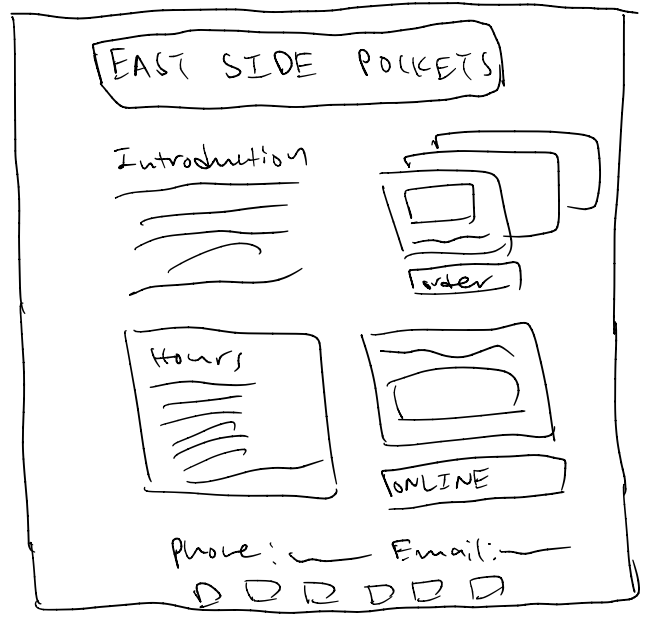 EAST SIDE POCKETS
Introduction
order
Hours
ONLINE
Phone: Email: